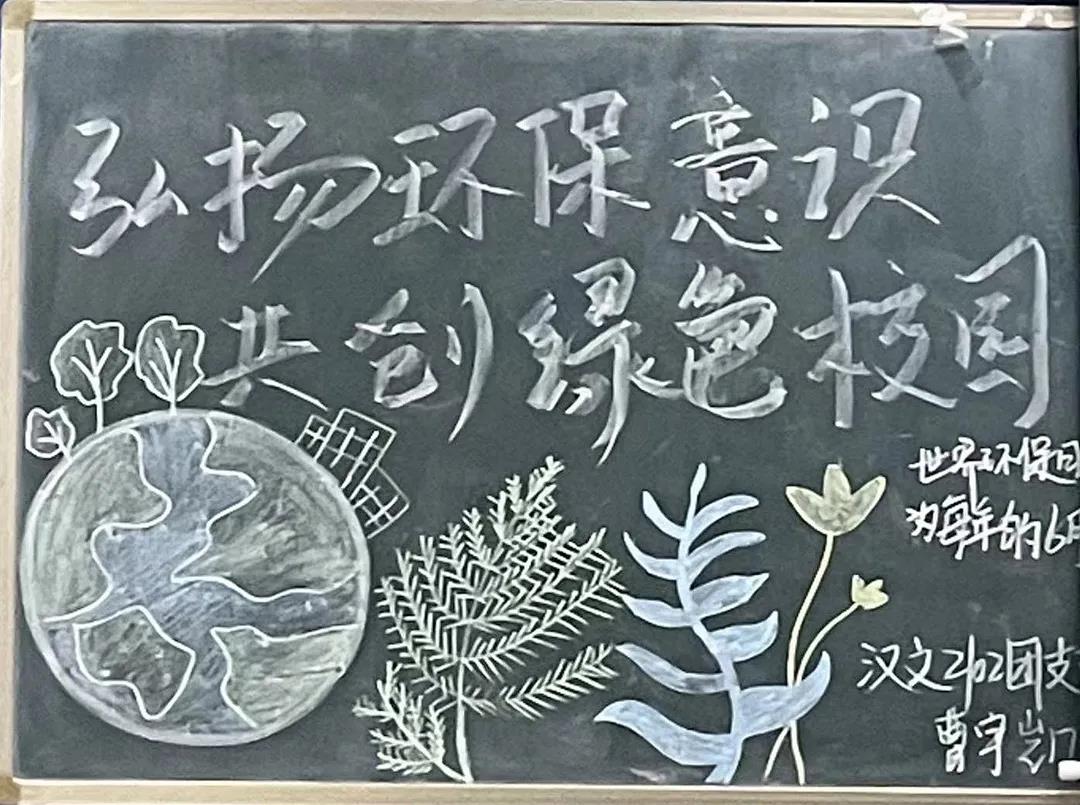 弘扬环保意识
共创绿色校园
世界环保日
为每年的6月
汉文2102团支
曹宇